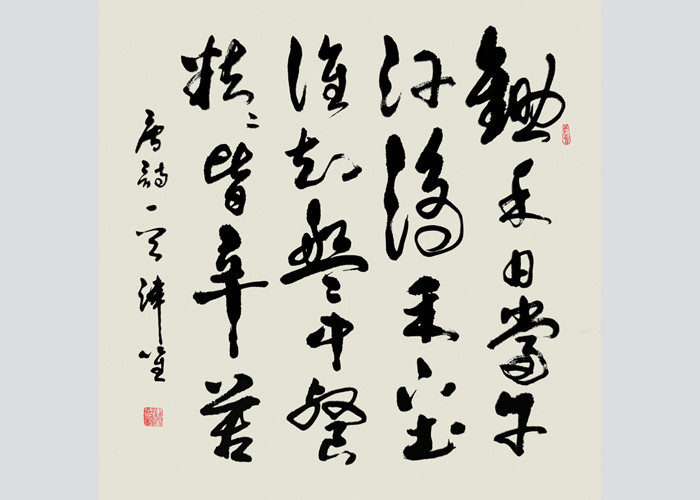 鋤禾日當午
汗滴禾下土
誰知盤中餐
粒〻皆辛苦
唐詩一首